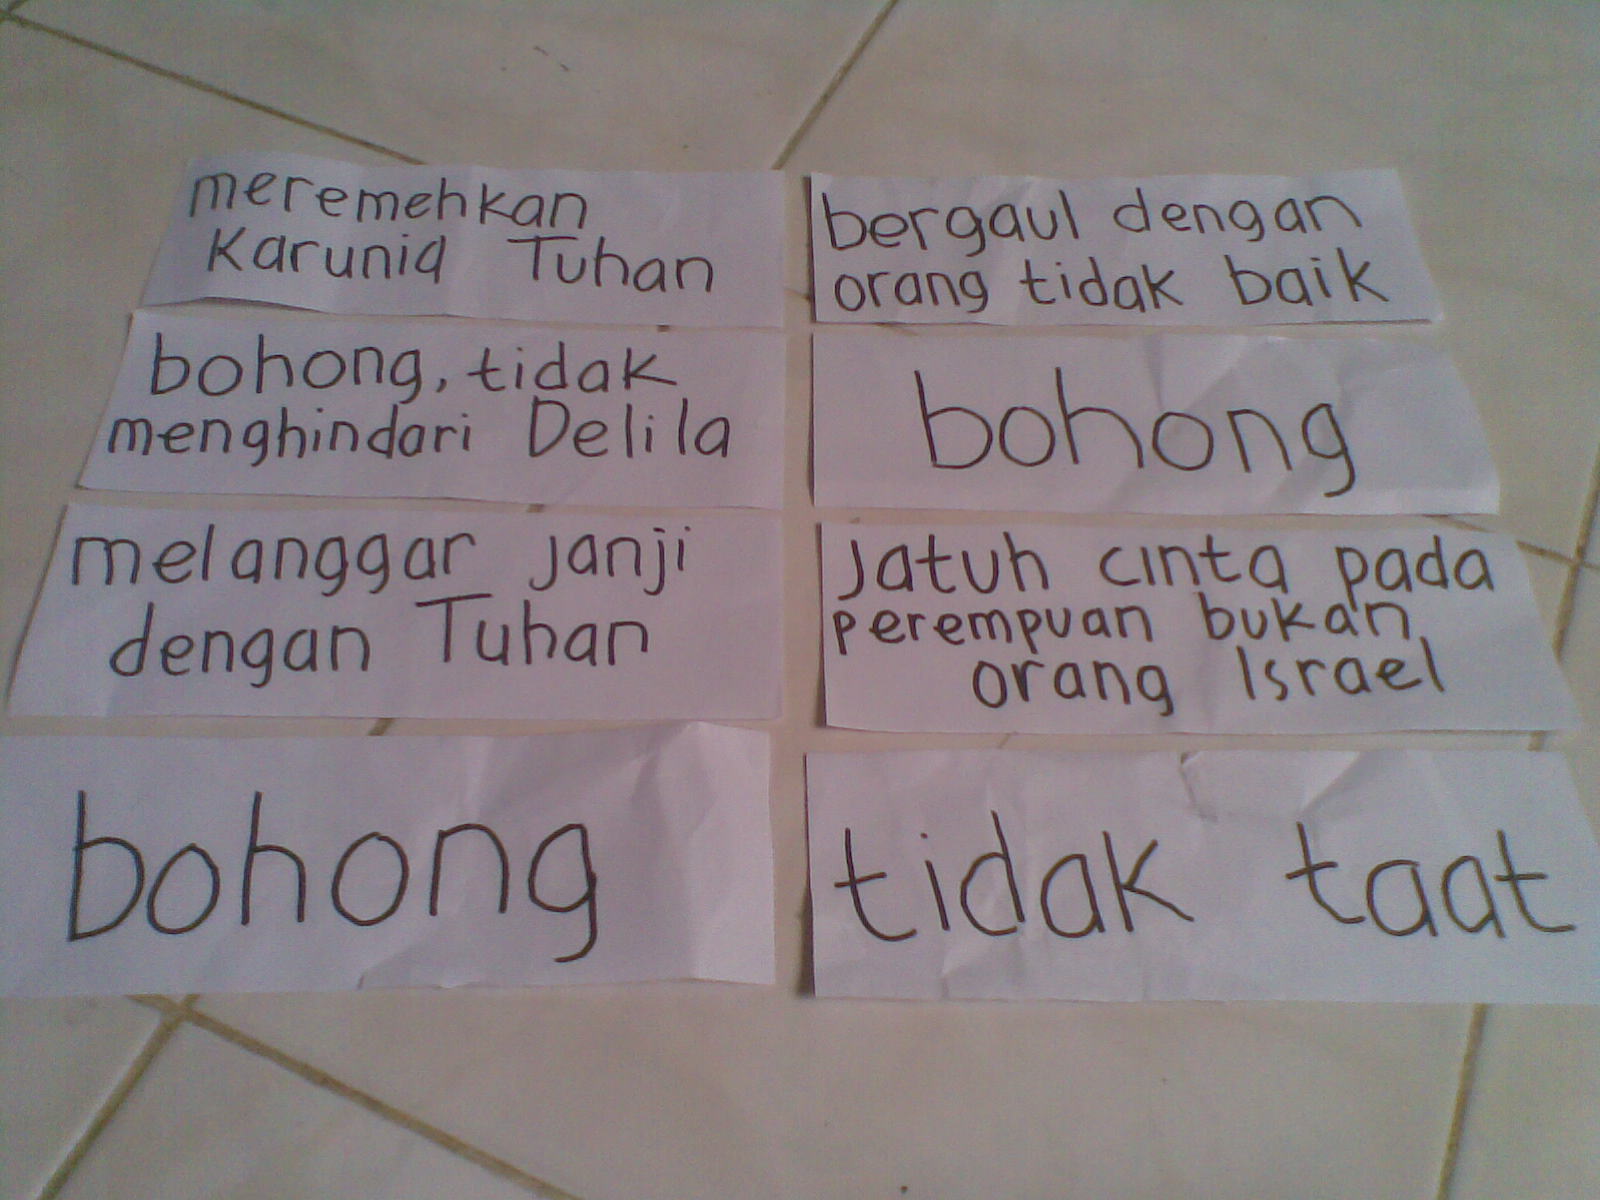 meremehkan
karunia Tuhan
bergaul dengan
orang tidak baik
bohong, tidak
menghindari Delila
bohong
melanggar janji
dengan Tuhan
Jatuh cinta pada
perempuan bukan
orang Israel
bohong
tidak taat